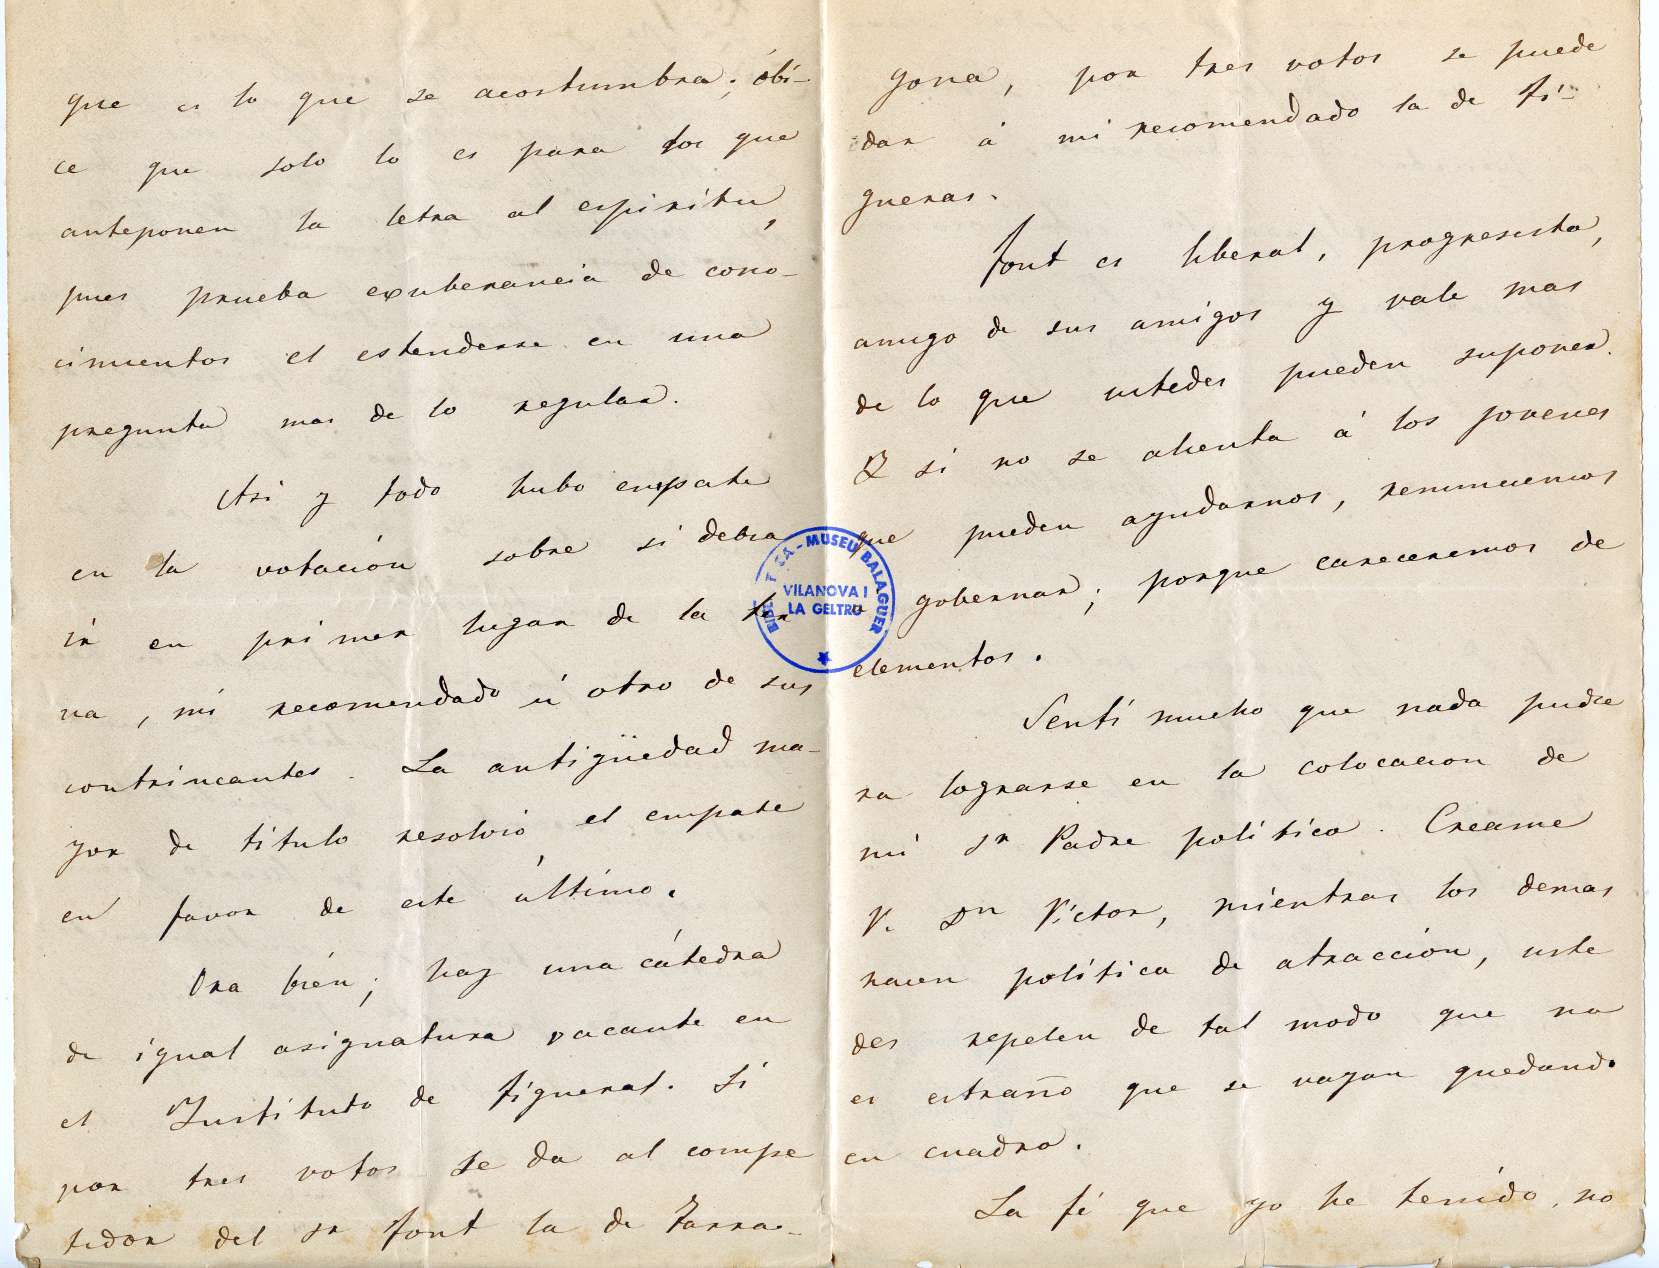 que es lo que se acostumbra; óbi-
ce que solo lo es para los que
anteponen la letra al espiritu,
pues prueba exuberancia de cono-
cimientos el estenderse en una
pregunta mas de lo regular.
Asi y todo hubo empate
en la votación sobre si debia
ir en primer lugar de la ter
na, mi recomendado ú otro de sus
contrincantes. La antigüedad ma-
yor de titulo resolvió el empate
en favor de este último.
Ora bién; hay una cátedra
de igual asignatura vacante en
el Instituto de Figueras. Si
por tres votos se da al compe
tidor del Sr Font la de Tarra-
gona, por tres votos se puede
dar á mi recomendado la de Fi-
gueras.
Font es liberal, progresista,
amigo de sus amigos y vale mas
de lo que ustedes pueden suponer.
Y si no se alienta á los jovenes
que pueden ayudarnos, renunciemos
a gobernar; porque careceremos de
elementos.
Sentí mucho que nada pudie
ra lograrse en la colocacion de
mi Sr Padre político. Creame
V. Dn Victor, mientras los demas
hacen política de atracción, uste
des repelen de tal modo que no
es estraño que se vayan quedando
en cuadro.
La fé que yo he tenido, no
BIBLIOTECA-MUSEU BALAGUER
VILANOVA I
LA GELTRU